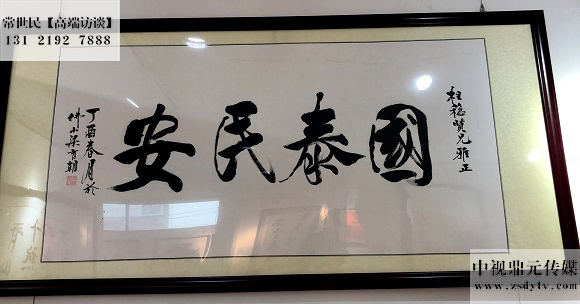 常世民【高端访谈】
131 2192 7888
桂稳贤兄雅正
國泰民安
丁酉春月於
佛山梁有朝
中视鼎元传媒
www.zsdytv.com